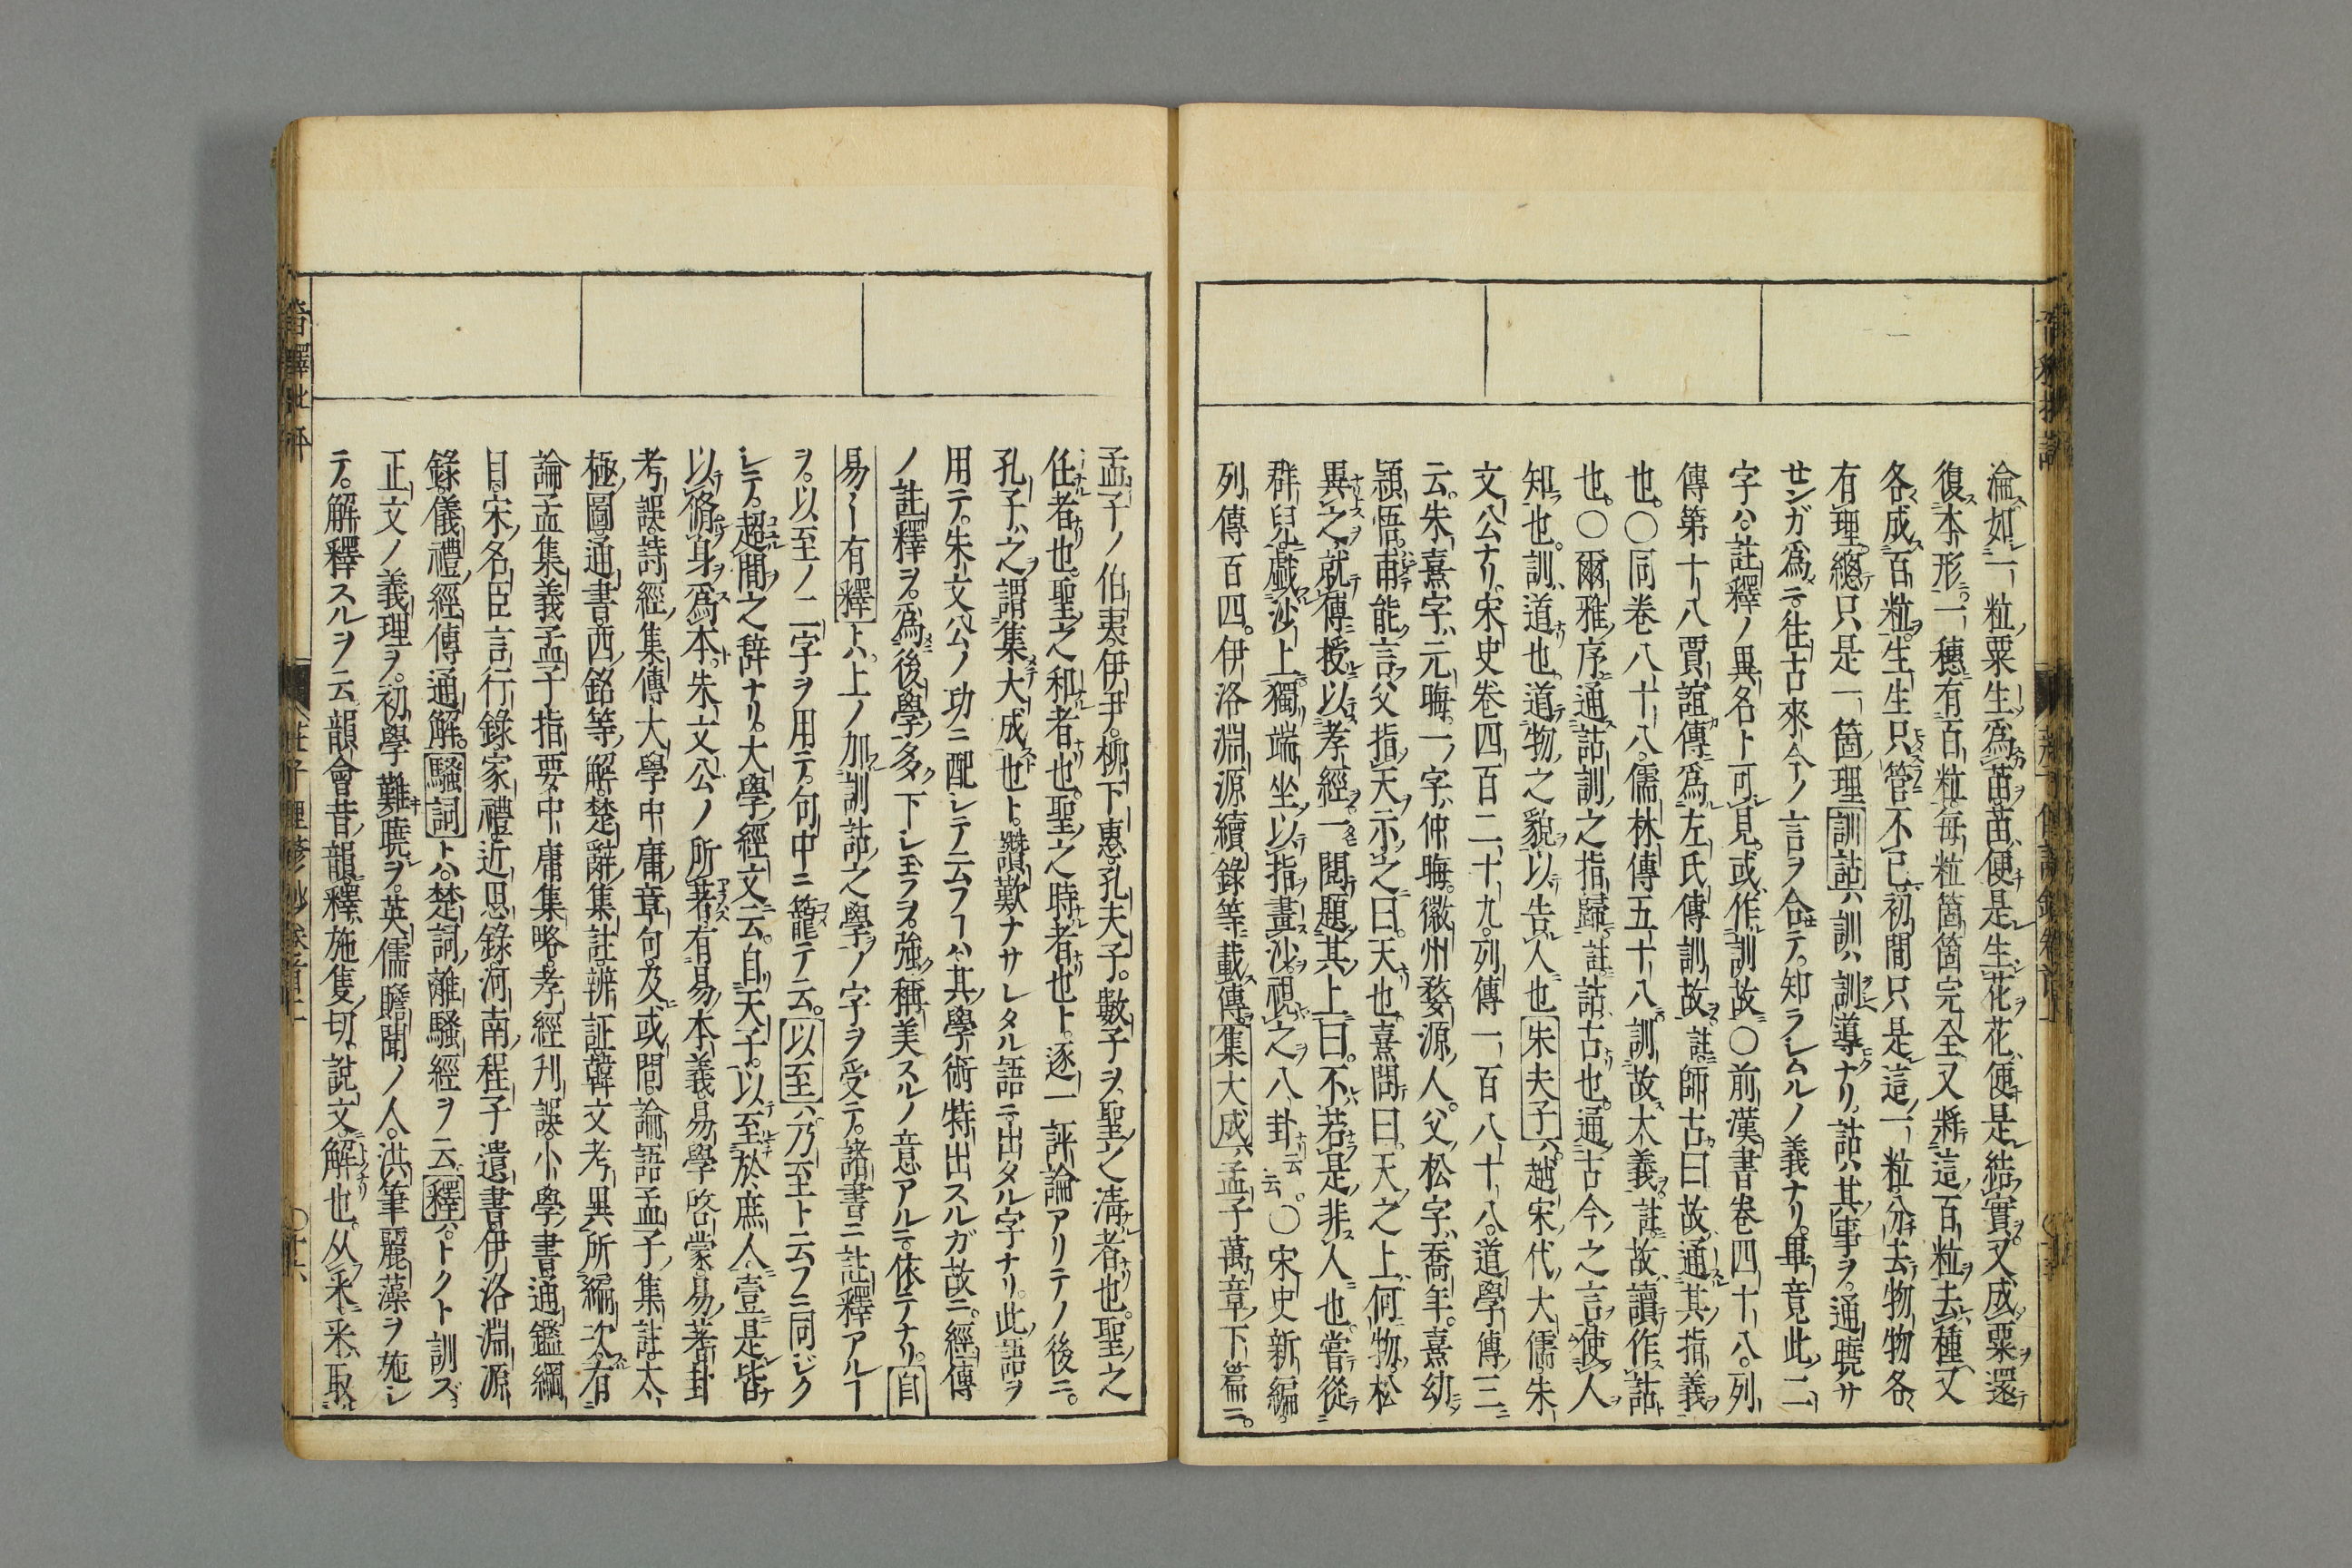 淪如一粒粟生爲苗苗便是生花花便是結實又成粟還
復本形一穗有百粒每粒箇箇完全又將這百粒去種又
各成百粒生生只管不已初間只是這一粒分去物物各
有理總只是一箇理訓詁ハ訓ハ訓導ナリ詁ハ其事ヲ通曉サ
センガ爲ニ往古來今ノ言ヲ合テ知ラシムルノ義ナリ畢竟此二
字ハ註釋ノ異名ト可見或作訓故〇前漢書卷四十八列
傳第十八賈誼傳爲左氏傳訓故註師古曰故通其指義
也〇同卷八十八儒林傳五十八訓故大義註故讀作詁
也〇爾雅序通詁訓之指歸註詁古也通古今之言使人
知也訓道也道物之貌以告人也朱夫子ハ越宋代大儒朱
文公ナリ宋史卷四百二十九列傳一百八十八道學傳三
云朱熹字元晦一字仲晦徽州婺源人父松字喬年熹幼
穎悟甫能言父指天示之曰天也熹問曰天之上何物松
異之就傅授以孝經一閱題其上曰不若是非人也嘗從
群兒戲沙上獨端坐以指畫沙視之八卦云云〇宋史新編
列傳百四伊洛淵源續錄等載傳集大成ハ孟子萬章下篇ニ
孟子ノ伯夷伊尹柳下惠孔夫子數子ヲ聖之淸者也聖之
任者也聖之和者也聖之時者也ト逐一評論アリテノ後ニ
孔子之謂集大成也ト讚歎ナサレタル語ニ出タル字ナリ此語ヲ
用テ朱文公ノ功ニ配シテ云フヿハ其學術特出スルガ故ニ經傳
ノ註釋ヲ爲後學多ク下シ玉フヲ強稱美スルノ意アルニ依テナリ自
易ー有釋トハ上ノ加訓詁之學ノ字ヲ受テ諸書ニ註釋アルヿ
ヲ以至ノ二字ヲ用テ句中ニ籠テ云以至ハ乃至ト云フニ同ジク
シテ超間之辭ナリ大學經文云自天子以至於庶人壹是皆
以脩身爲本朱文公ノ所著有易本義易學啓蒙易蓍卦
考誤詩經集傳大學中庸章句及或問論語孟子集註太
極圖通書西銘等解楚辭集註辨証韓文考異所編次有
論孟集義孟子指要中庸集略孝經刊誤小學書通鑑綱
目宋名臣言行錄家禮近思錄河南程子遺書伊洛淵源
錄儀禮經傳通解騷詞トハ楚詞離騷經ヲ云釋ハトクト訓ズ
正文ノ義理ヲ初學難曉ヲ英儒瞻聞ノ人洪筆麗藻ヲ施シ
テ解釋スルヲ云韻會昔韻釋施隻切說文解也从釆釆取